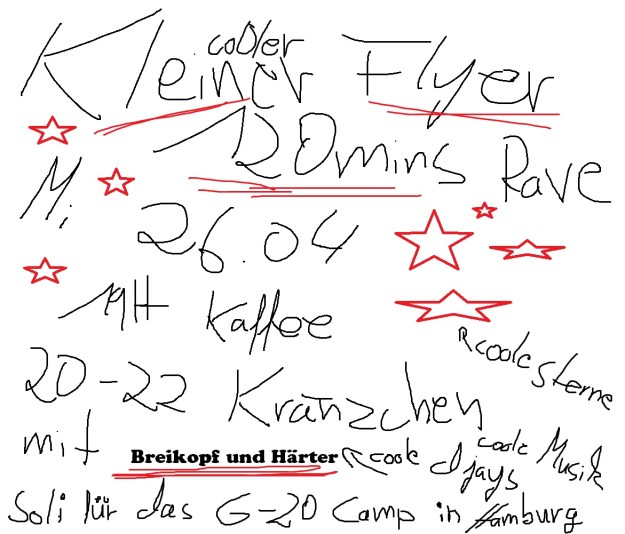 cooler
Kleiner Flyer
120mins Rave
Mi
26.04
19H Kaffee
coole Sterne
20-22 Kränzchen
mit Breikopf und Härter coole djays coole Musik
Soli für das G-20 Camp in Hamburg